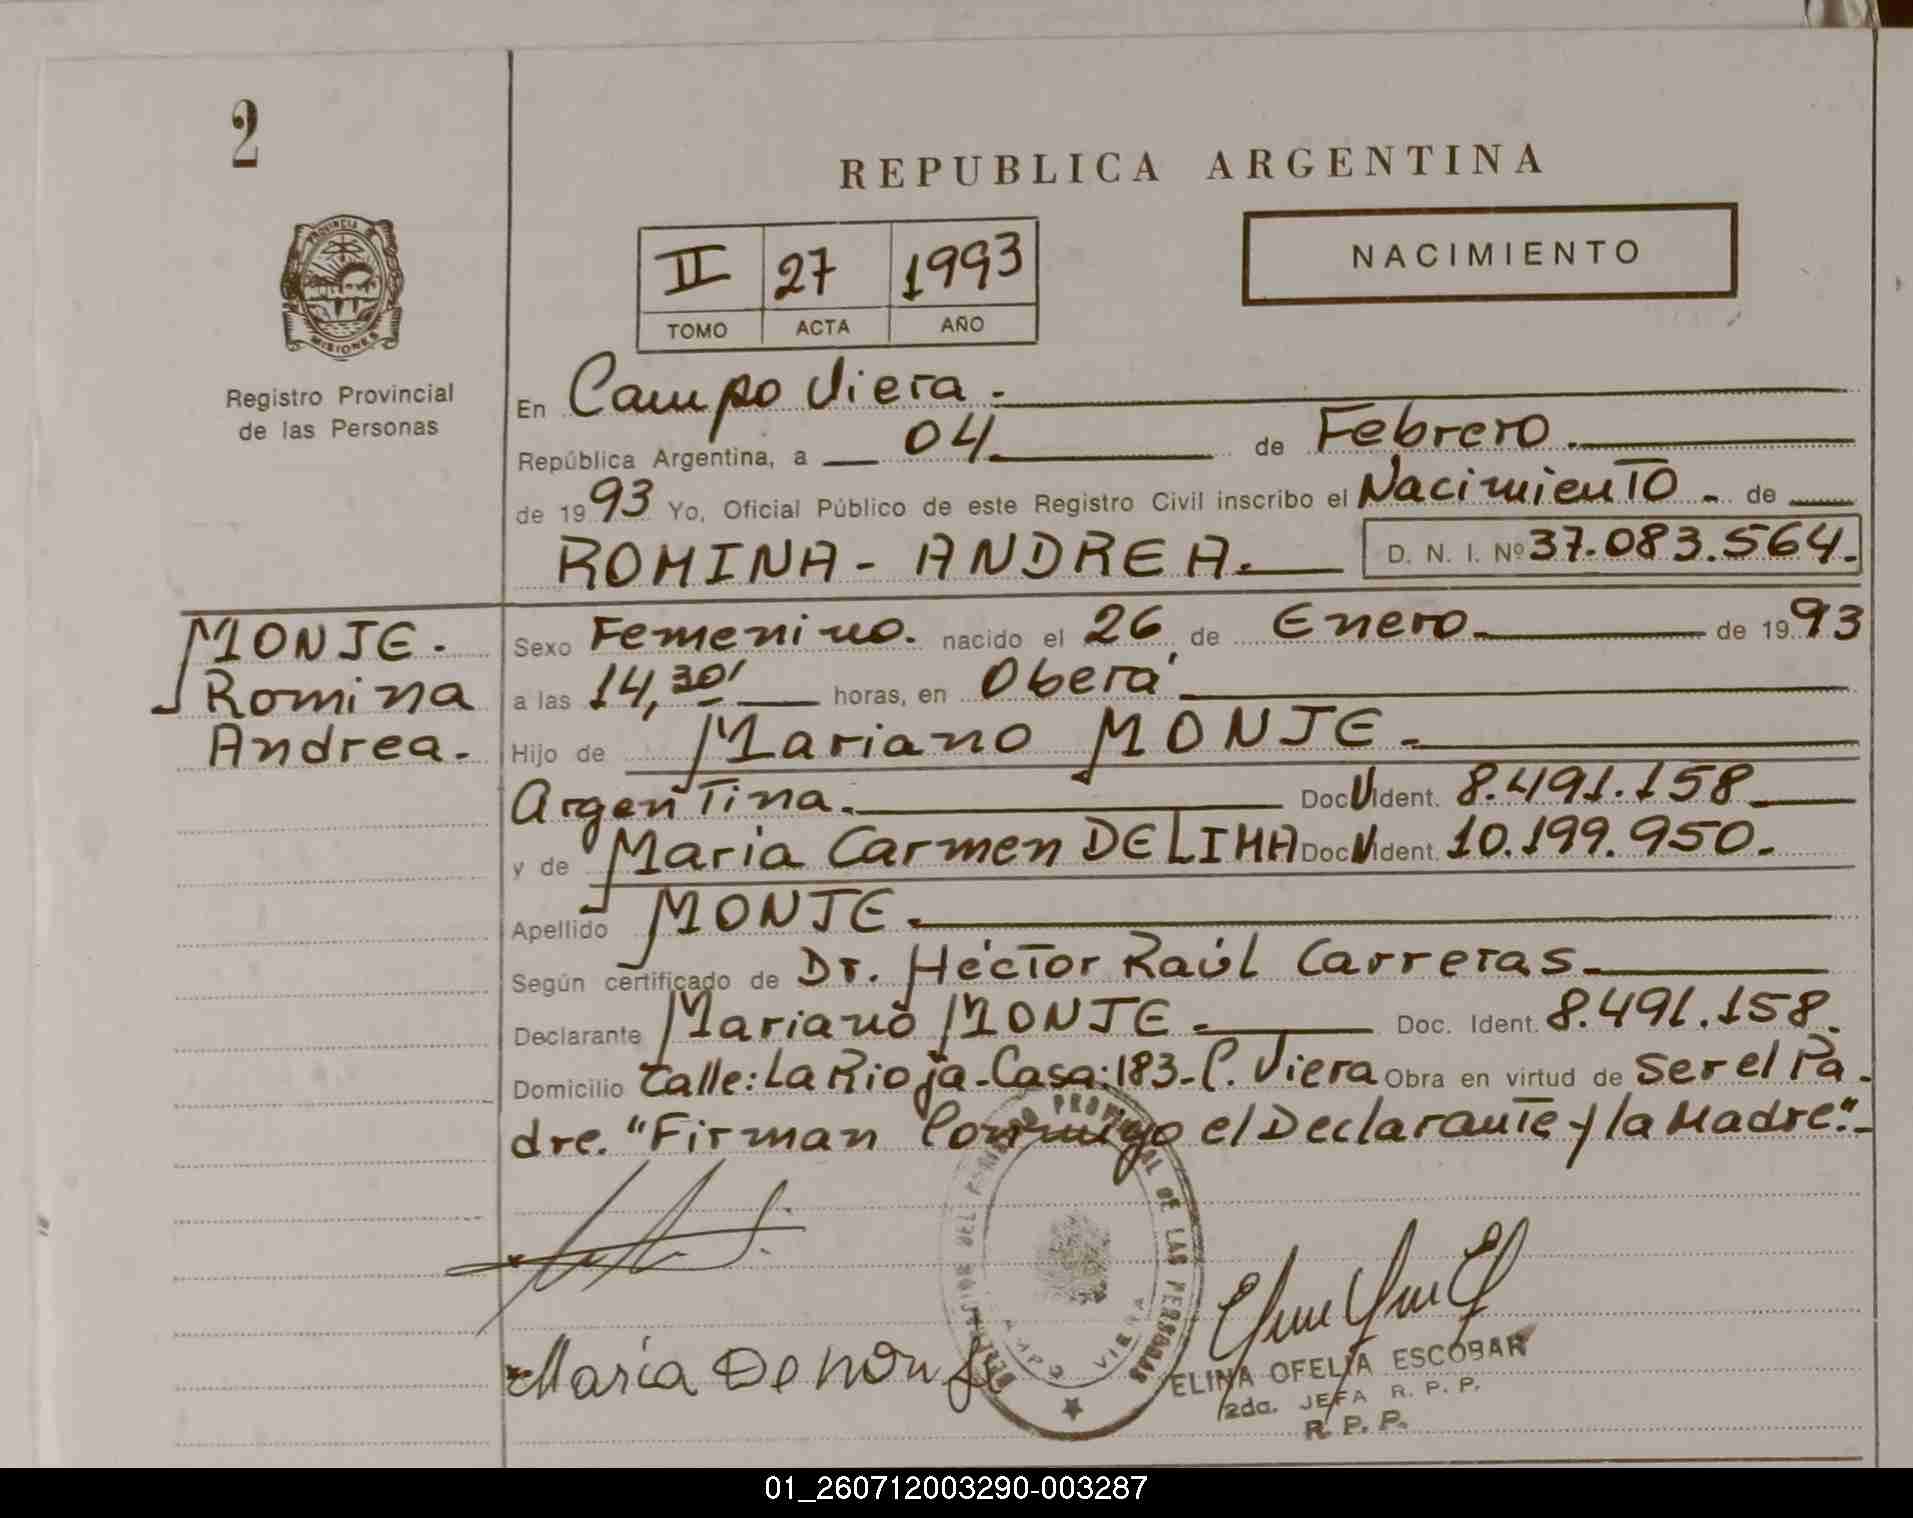 2
REPUBLICA ARGENTINA
PROVINCIA DE
MISIONES
Registro Provincial
de las Personas
II 27 1993
TOMO ACTA AÑO
NACIMIENTO
En Campo Viera.
República Argentina, a 04 de Febrero.
de 1993 Yo, Oficial Público de este Registro Civil inscribo el Nacimiento - de
ROMINA - ANDREA. D. N. I. Nº 37.083.564.
MONJE.
Romina
Andrea.
Sexo Femenino. nacido el 26 de Enero de 1993
a las 14,30' horas, en Oberá
Hijo de Mariano MONJE.
Argentina. Doc. Ident. 8.491.158
y de Maria Carmen DE LIMA Doc. Ident. 10.199.950.
Apellido MONJE.
Según certificado de Dr. Héctor Raúl Carreras.
Declarante Mariano MONJE. Doc. Ident. 8.491.158.
Domicilio Calle: La Rioja - Casa: 183 - C. Viera Obra en virtud de ser el Pa-
dre. "Firman Conmigo el Declarante y la Madre".
PROVINCIAL DE LAS PERSONAS
CAMPO VIERA
Maria De Monje
ELINA OFELIA ESCOBAR
2da. JEFA R. P. P.
R. P. P.
01_260712003290-003287